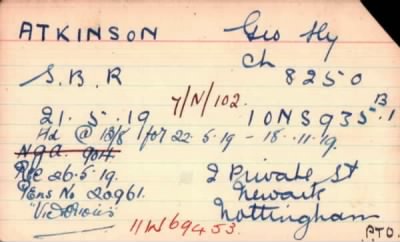 ATKINSON Geo Hy
Ch
S.B.R 8250
Y/N/102.
21.5.19 10NS935 B.1
Hd @ 13/8 for 22.5.19 - 18.11.19.
NGA. 904.
Rec 26.5.19. 2 Private St
Pens No 20961. Newark
"Victorious" Nottingham
11W69453. P.T.O.